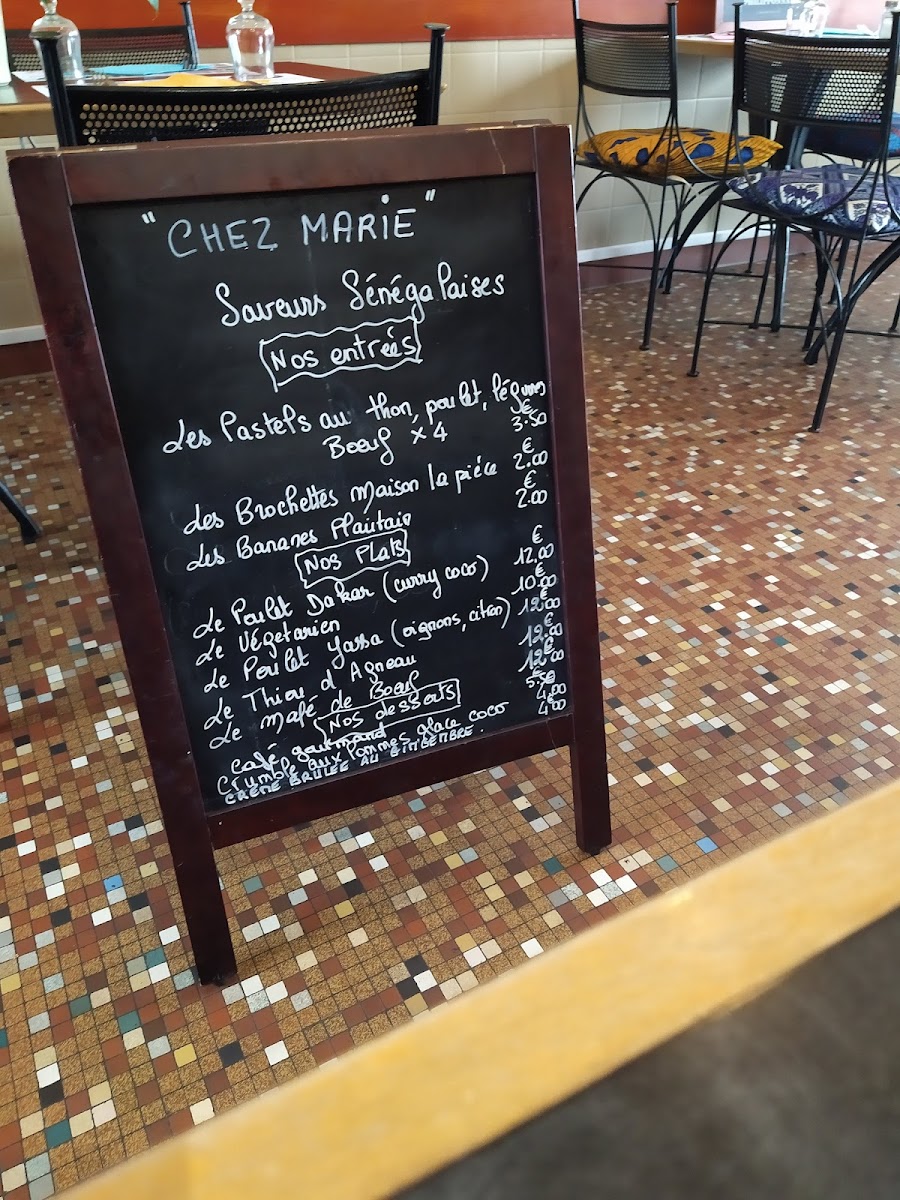 "CHEZ MARIE"
Saveurs Sénégalaises
Nos entrées
Les Pastels au thon, poulet, légumes
Boeuf x 4 3.50 €
Les Brochettes maison la pièce 2.00 €
Les Bananes Plantain 2.00 €
Nos Plats
Le Poulet Dakar (curry coco) 12.00 €
Le Végetarien 10.00 €
Le Poulet Yassa (oignons, citron) 12.00 €
Le Thiou d'Agneau 12.00 €
Le Mafé de Boeuf 12.00 €
Nos desserts
café gourmand 5.50 €
Crumble aux Pommes glace coco 4.00 €
CRÈME BRULÉE AU GINGEMBRE. 4.00 €